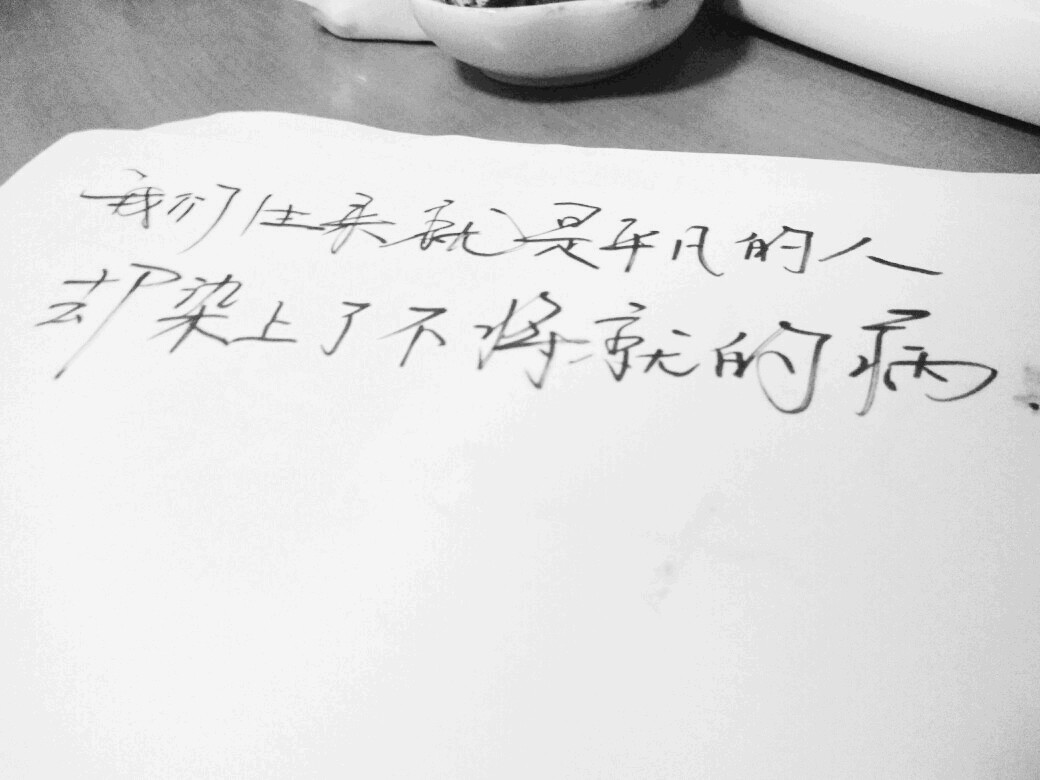 我们生来就是平凡的人
却染上了不将就的病.